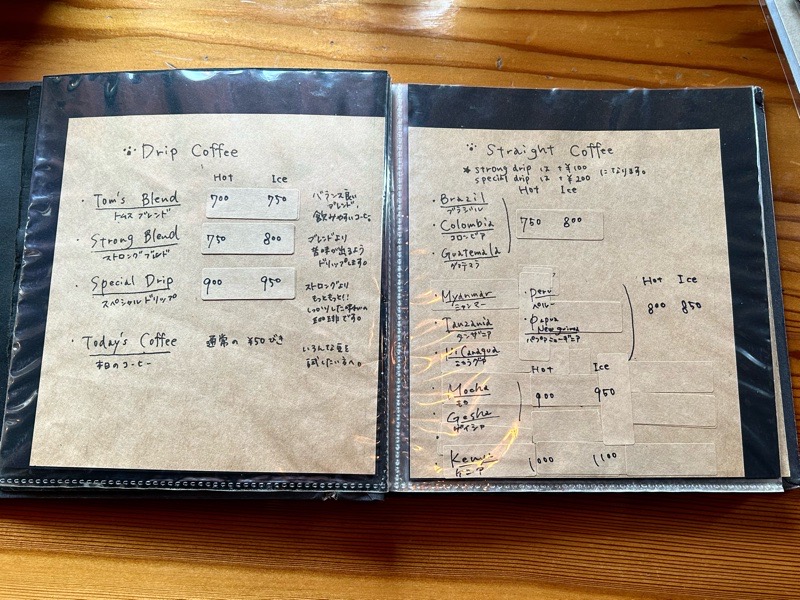 Drip Coffee
Hot Ice
・Tom's Blend 700 750
トムス ブレンド
バランス良い
ブレンド。
飲みやすいコーヒー。
・Strong Blend 750 800
ストロングブレンド
ブレンドより
苦味が出るよう
ドリップします。
・Special Drip 900 950
スペシャルドリップ
ストロングより
もっともっと!!
しっかりした味わいの
珈琲です。
・Today's Coffee 通常の ¥50びき
本日のコーヒー
いろんな豆を
試したい方へ。
Straight Coffee
* strong drip は +¥100
special drip は +¥200 になります。
Hot Ice
・Brazil
ブラジル
・Colombia 750 800
コロンビア
・Guatemala
グァテマラ
Hot Ice
800 850
・Myanmar
ミャンマー
・Peru
ペルー
・Tanzania
タンザニア
・Papua
New guinea
パプアニューギニア
・Nicaragua
ニカラグア
Hot Ice
・Mocha 900 950
モカ
・Gesha
ゲイシャ
・Kenia 1000 1100
ケニア